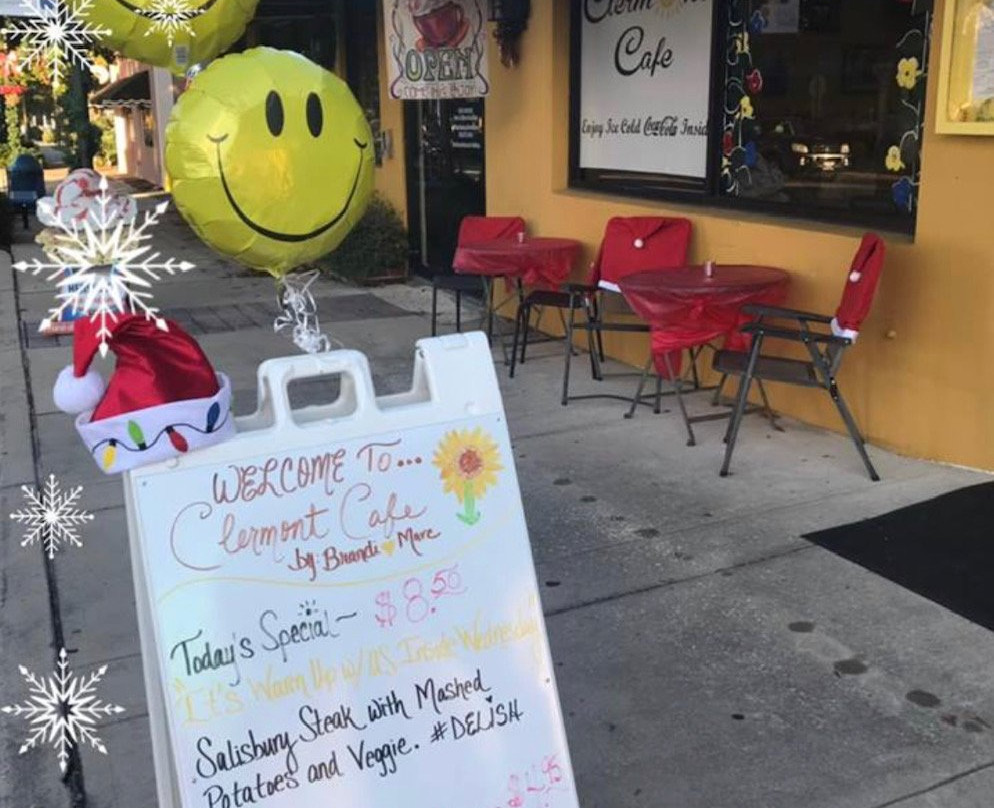 OPEN
Clerm
Cafe
Enjoy Ice Cold Coca-Cola Insid
WELCOME TO...
Clermont Cafe
by: Brandi Marc
Today's Special~ $8.50
"It's Warm Up w/ us Inside Wednesday"
Salisbury Steak with Mashed
Potatoes and Veggie. #DELISH
$4.95